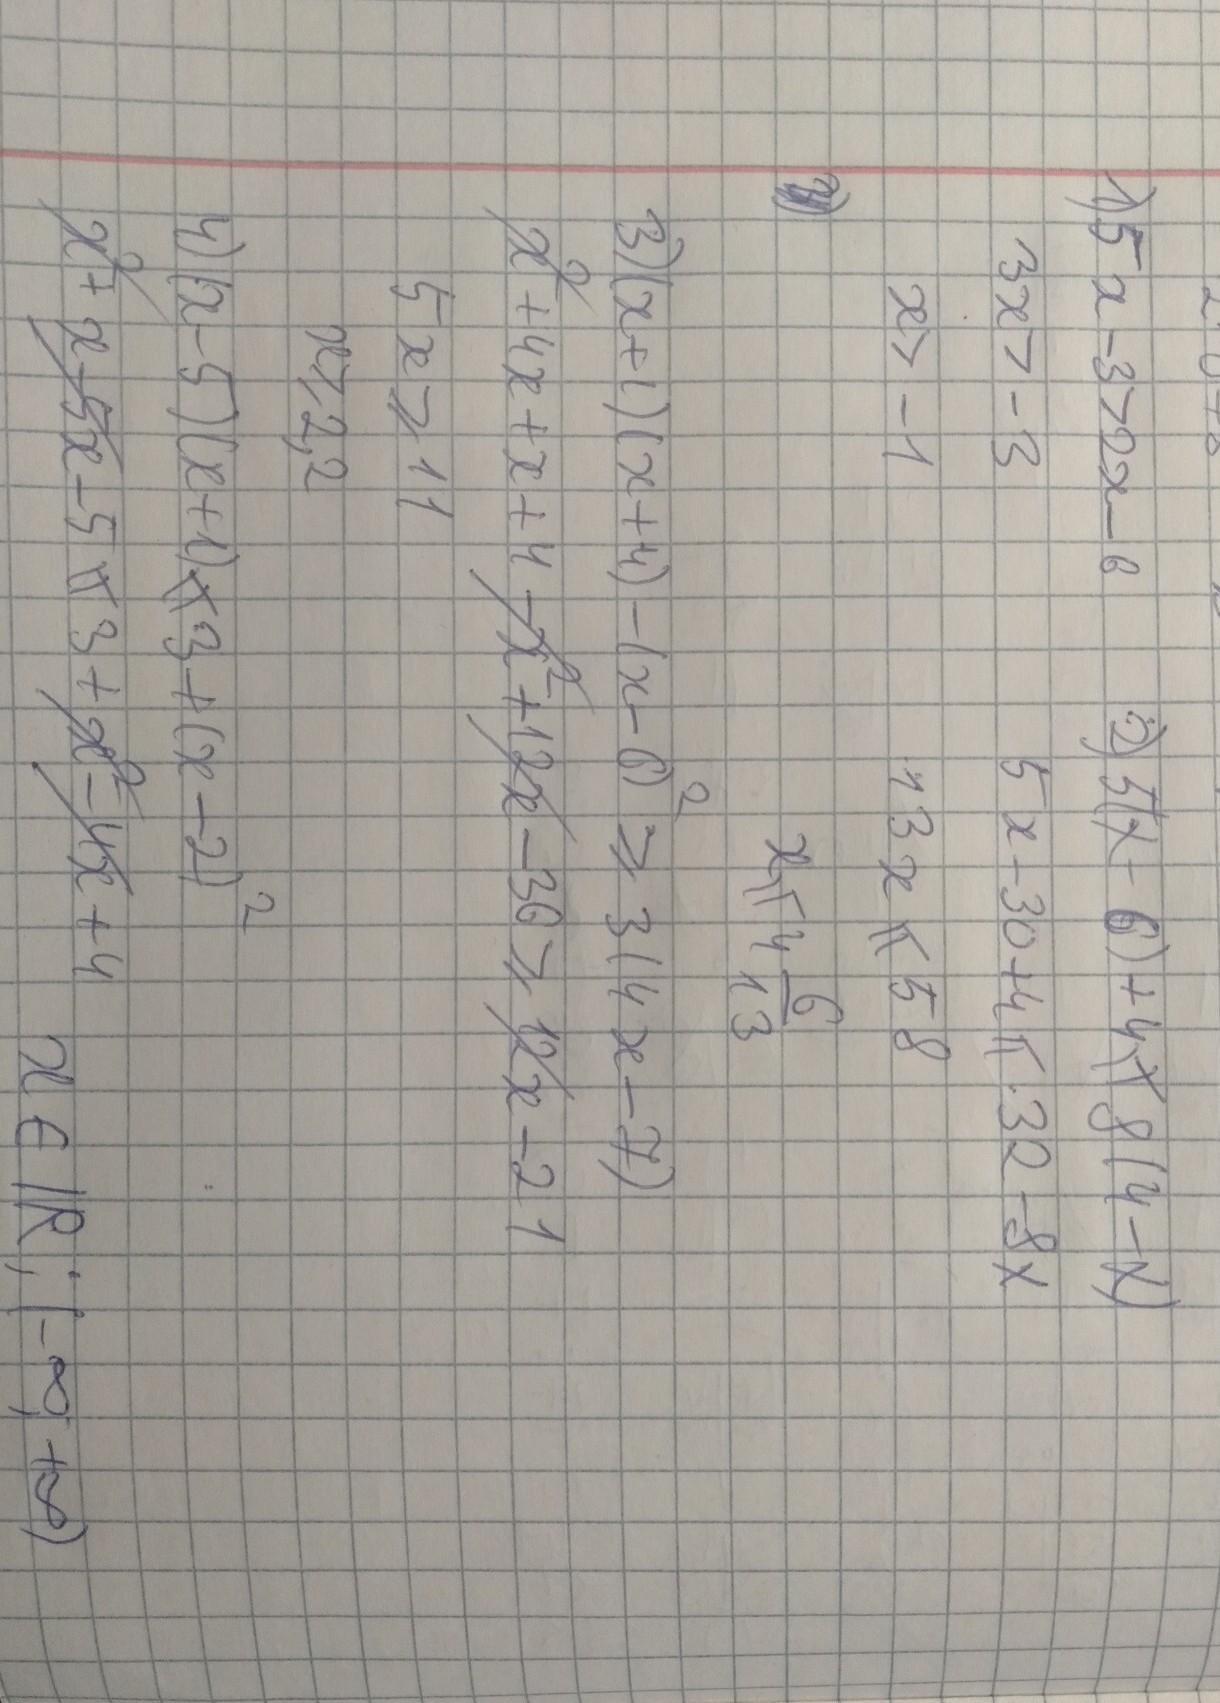 1) 5x - 3 > 2x - 6
3x > -3
x > -1
2) 5(x - 6) + 4 ⩽ 8(4 - x)
5x - 30 + 4 ⩽ 32 - 8x
13x ⩽ 58
x ⩽ 4 6/13
3) (x+1)(x+4) - (x-6)² ⩾ 3(4x-7)
x² + 4x + x + 4 - x² + 12x - 36 ⩾ 12x - 21
5x ⩾ 11
x ⩾ 2,2
4) (x-5)(x+1) ⩽ 3 + (x-2)²
x² + x - 5x - 5 ⩽ 3 + x² - 4x + 4
x ∈ ℝ; (-∞, +∞)